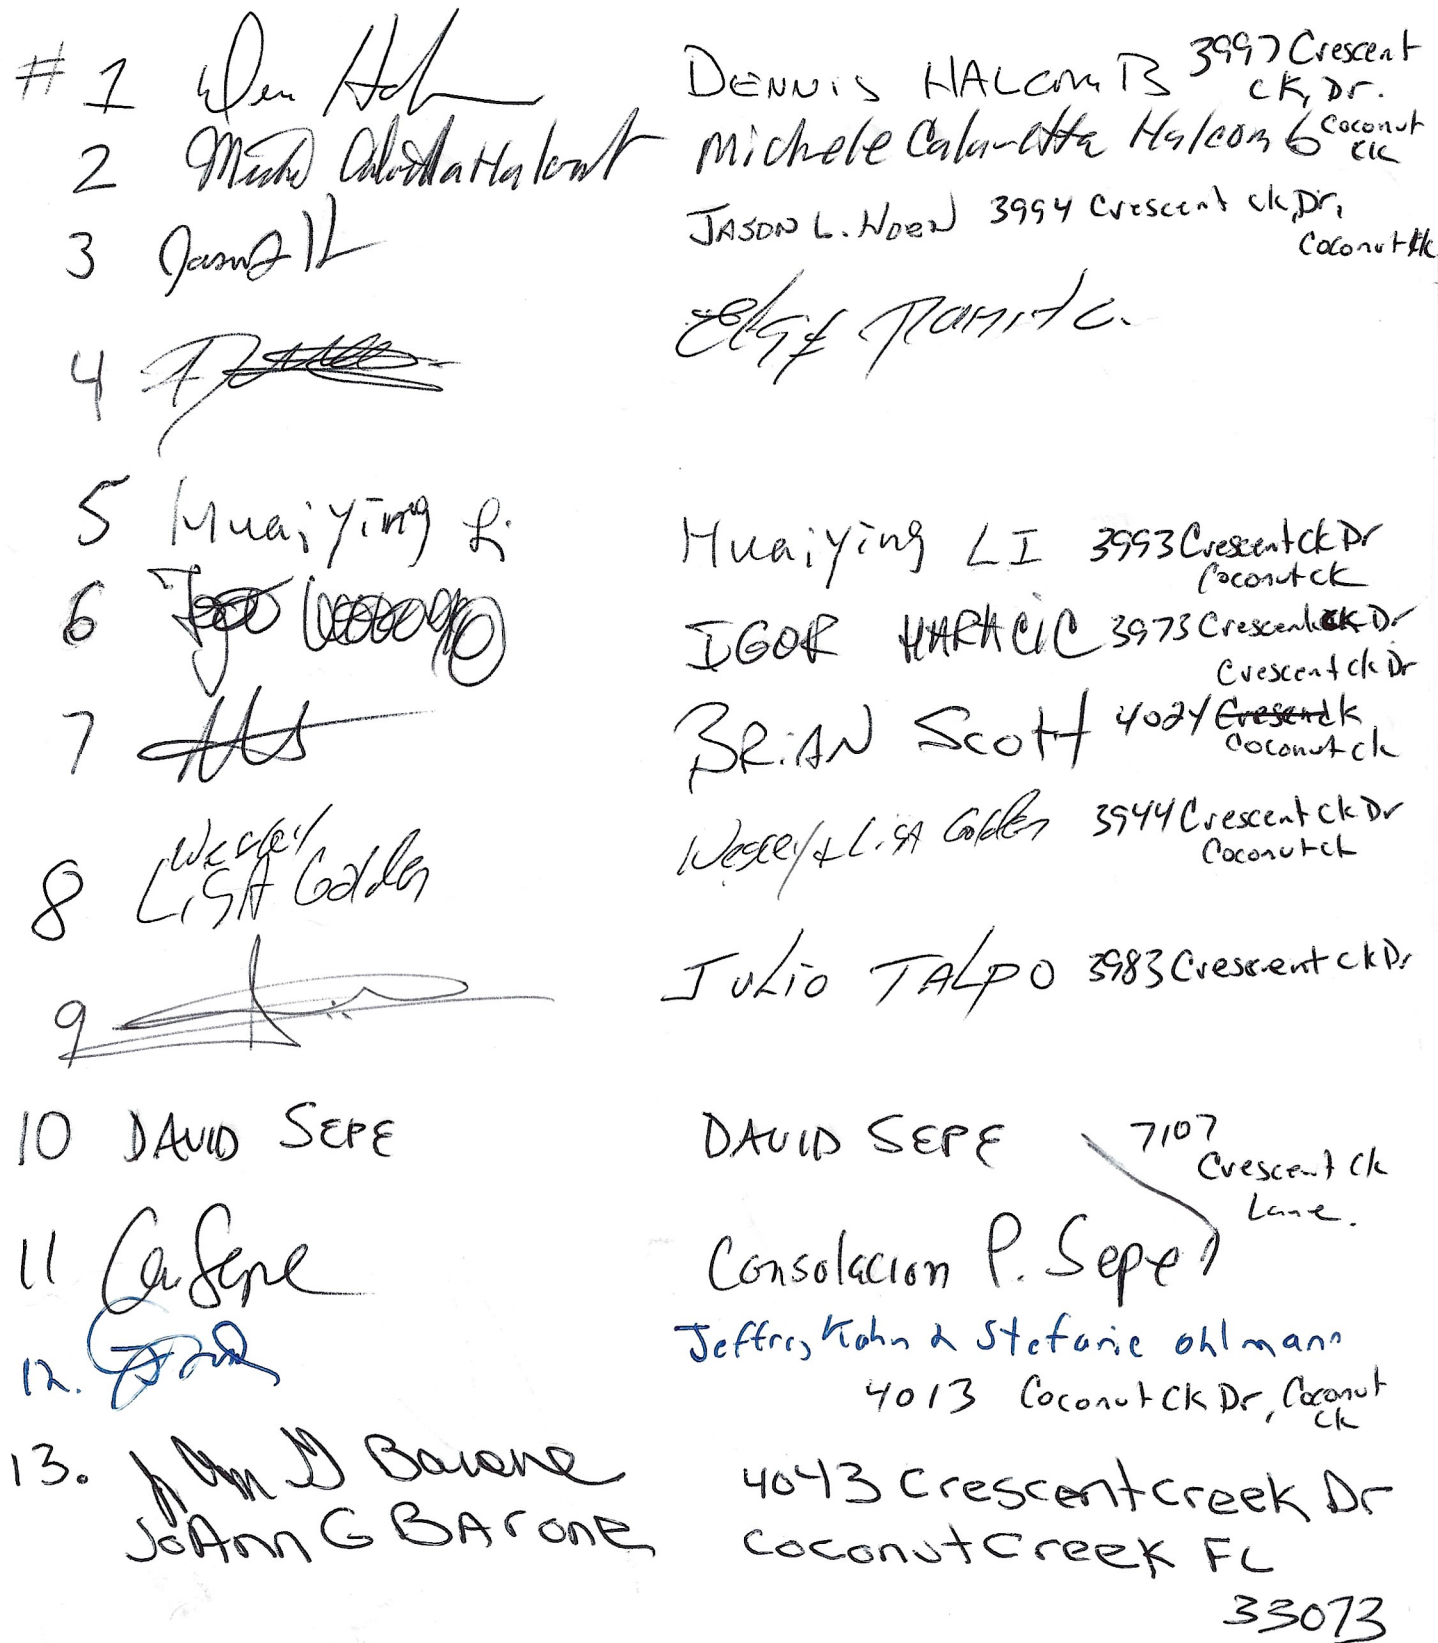 # 1 DENNIS HALCOMB 3997 Crescent
CK, Dr.
2 Michele Calametta Halcomb Coconut
CK
3 JASON L. HOEN 3994 Crescent ck Dr,
Coconut Ck
4
5 Huaiying Li Huaiying LI 3993 Crescent Ck Dr
Coconut ck
6 IGOR HARACIC 3973 Crescent Ck Dr
Crescent ck Dr
7 BRIAN SCOTT 4024
Coconut ck
8 Wesley
LISA Golden Wesley & LISA Golden 3944 Crescent Ck Dr
Coconut ck
9 JULIO TALPO 3983 Crescent ck Dr
10 DAVID SEPE DAVID SEPE 7107
Crescent Ck
Lane.
11 Consolacion P. Sepe
12. Jeffrey Kahn & Stefanie Ohlmann
4013 Coconut Ck Dr, Coconut
Ck
13. Barone 4043 Crescent Creek Dr
JoAnn G BArone Coconut Creek FL
33073